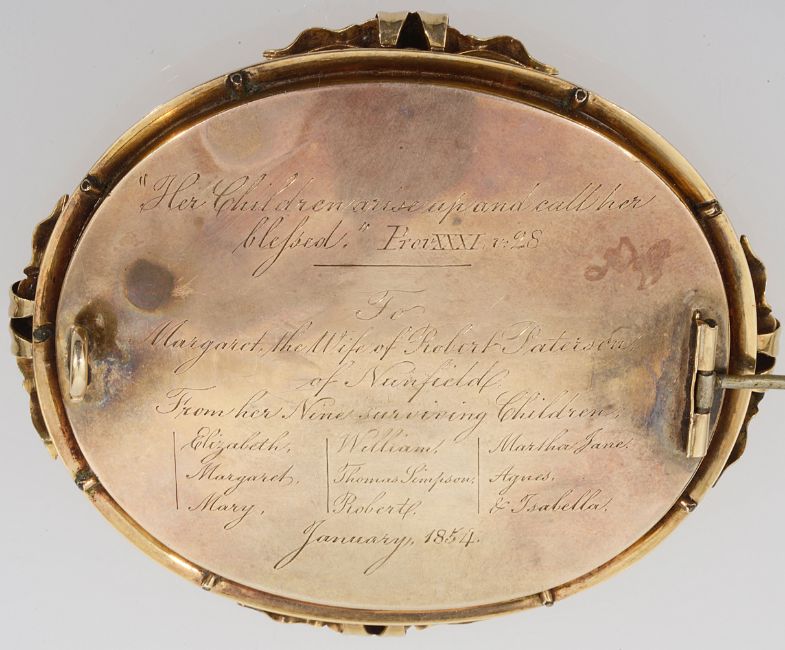 "Her Children arise up and call her
blessed." Prov. XXXI. v. 28
To
Margaret, the Wife of Robert Paterson
of Nunfield,
From her Nine surviving Children,
Elizabeth, William, Martha Jane,
Margaret, Thomas Simpson, Agnes,
Mary, Robert, & Isabella.
January, 1854.